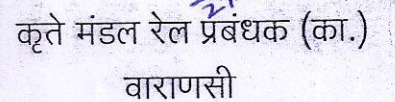 कृते मंडल रेल प्रबंधक (का.)
वाराणसी